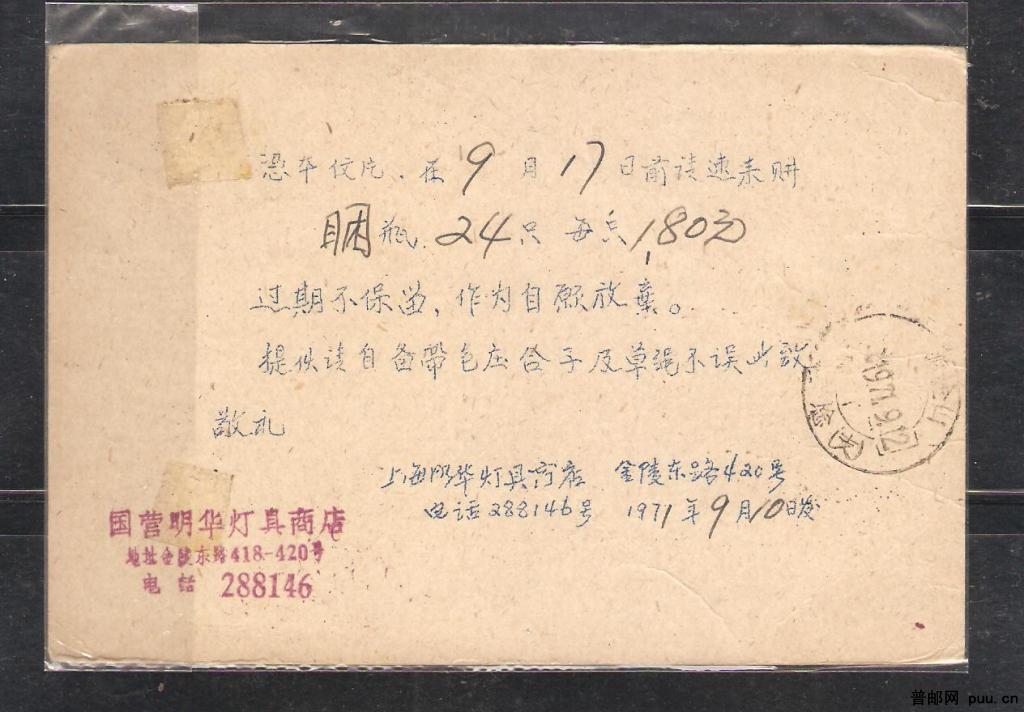 憑本仗片、在9月17日前请速来购
睏瓶 24只 每只1,80元
过期不保留，作为自愿放棄。
提供请自备带包庄合子及草绳不误此致
敬礼
上海明华灯具商店 金陵东路420号
电话288146号 1971年9月10日发
国营明华灯具商店
地址金陵东路418-420号
电话 288146
1971.9.12
普邮网 puu.cn